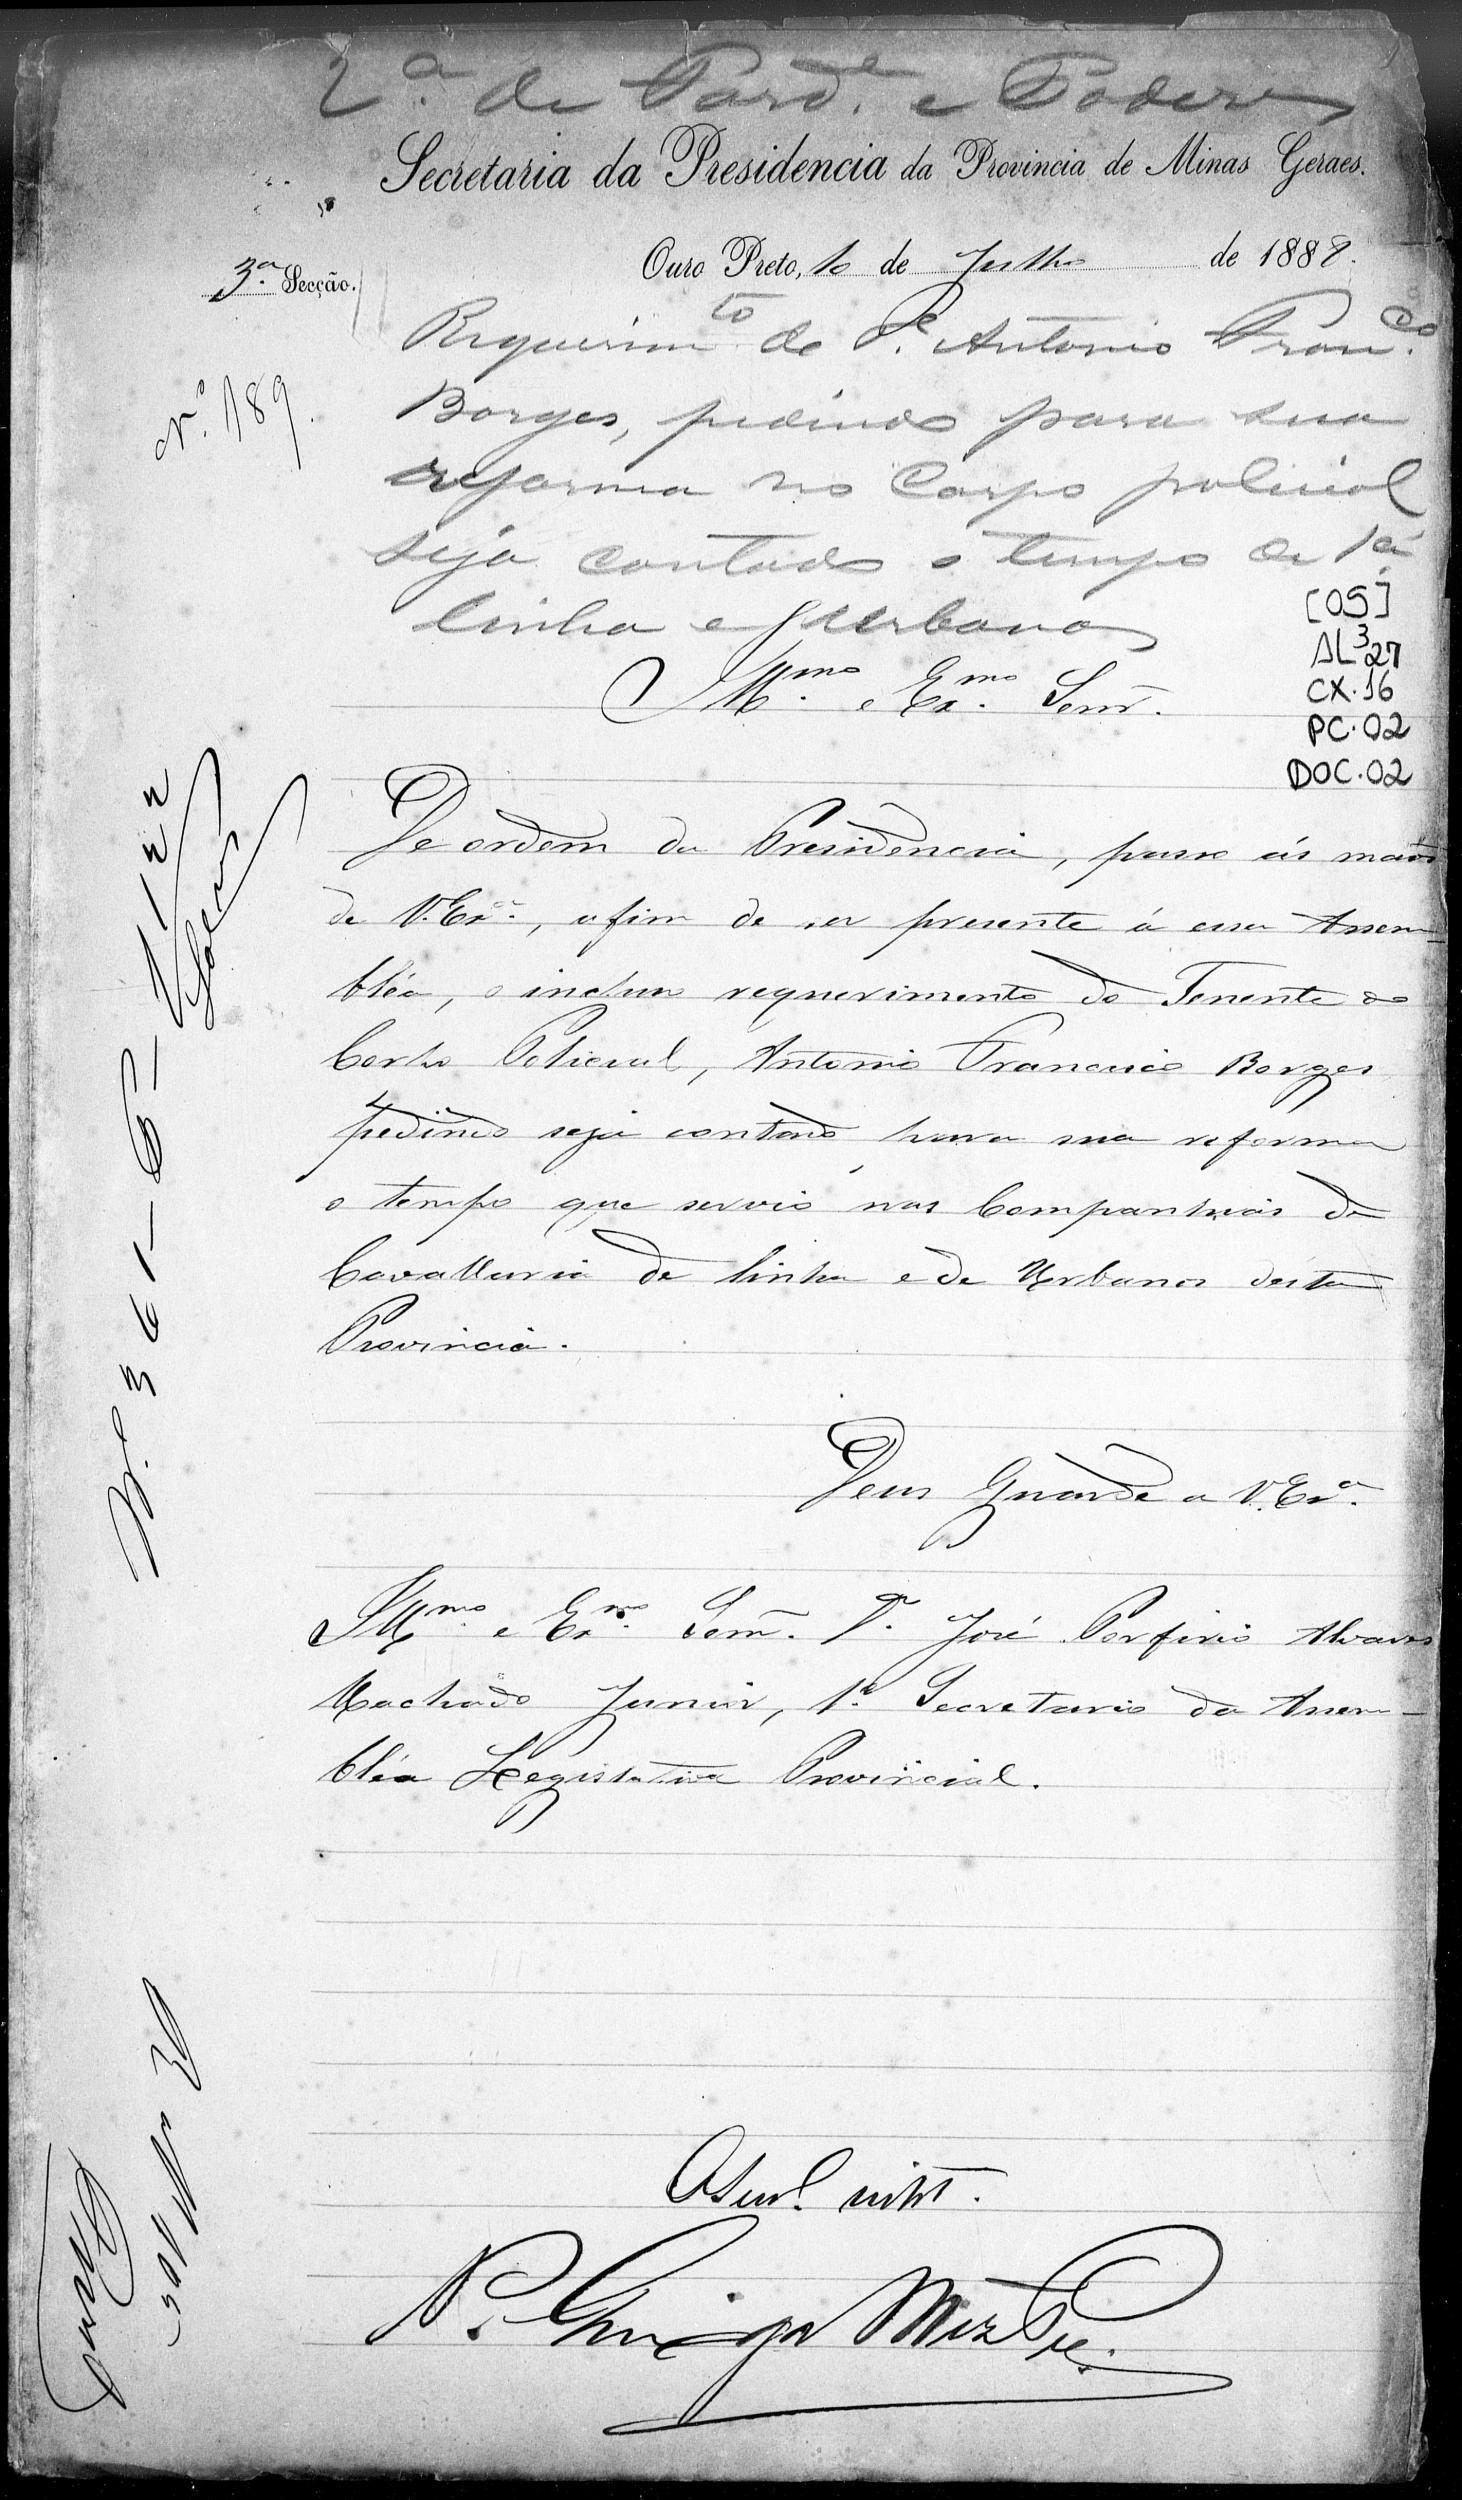 2ª de e Poderes
Secretaria da Presidencia da Provincia de Minas Geraes.
3ª Secção.
Ouro Preto, 10 de Julho de 1888.
Nº 189.
Requerimto do Antonio Franco
Borges, pedindo para sua
reforma no Corpo policial
seja contado o tempo de 1ª
linha e Urbanos
[05]
AL³27
CX.16
PC.02
DOC.02
Illmo e Exmo Senr.
De ordem da Presidencia, passo ás mãos
de V. Exª, afim de ser presente á essa Assem-
bléa, o incluso requerimento do Tenente do
Corpo Policial, Antonio Francisco Borges
pedindo seja contado para sua reforma
o tempo que servio nas Companhias de
Cavallaria de linha e de Urbanos desta
Provincia.
Deus Guarde a V. Exª.
Illmo e Exmo Senr. Dr. José Porfirio Alvares
Machado Junior, 1º Secretario da Assem-
bléa Legislativa Provincial.